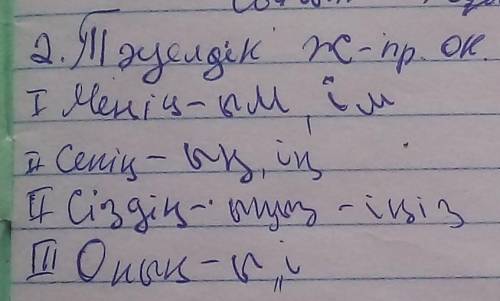 2. Тәуелдік ж-пр. ок.
I Менің - ым, ім
II Сенің - ың, ің
II Сіздің - ыңыз - іңіз
III Оның - ы, і